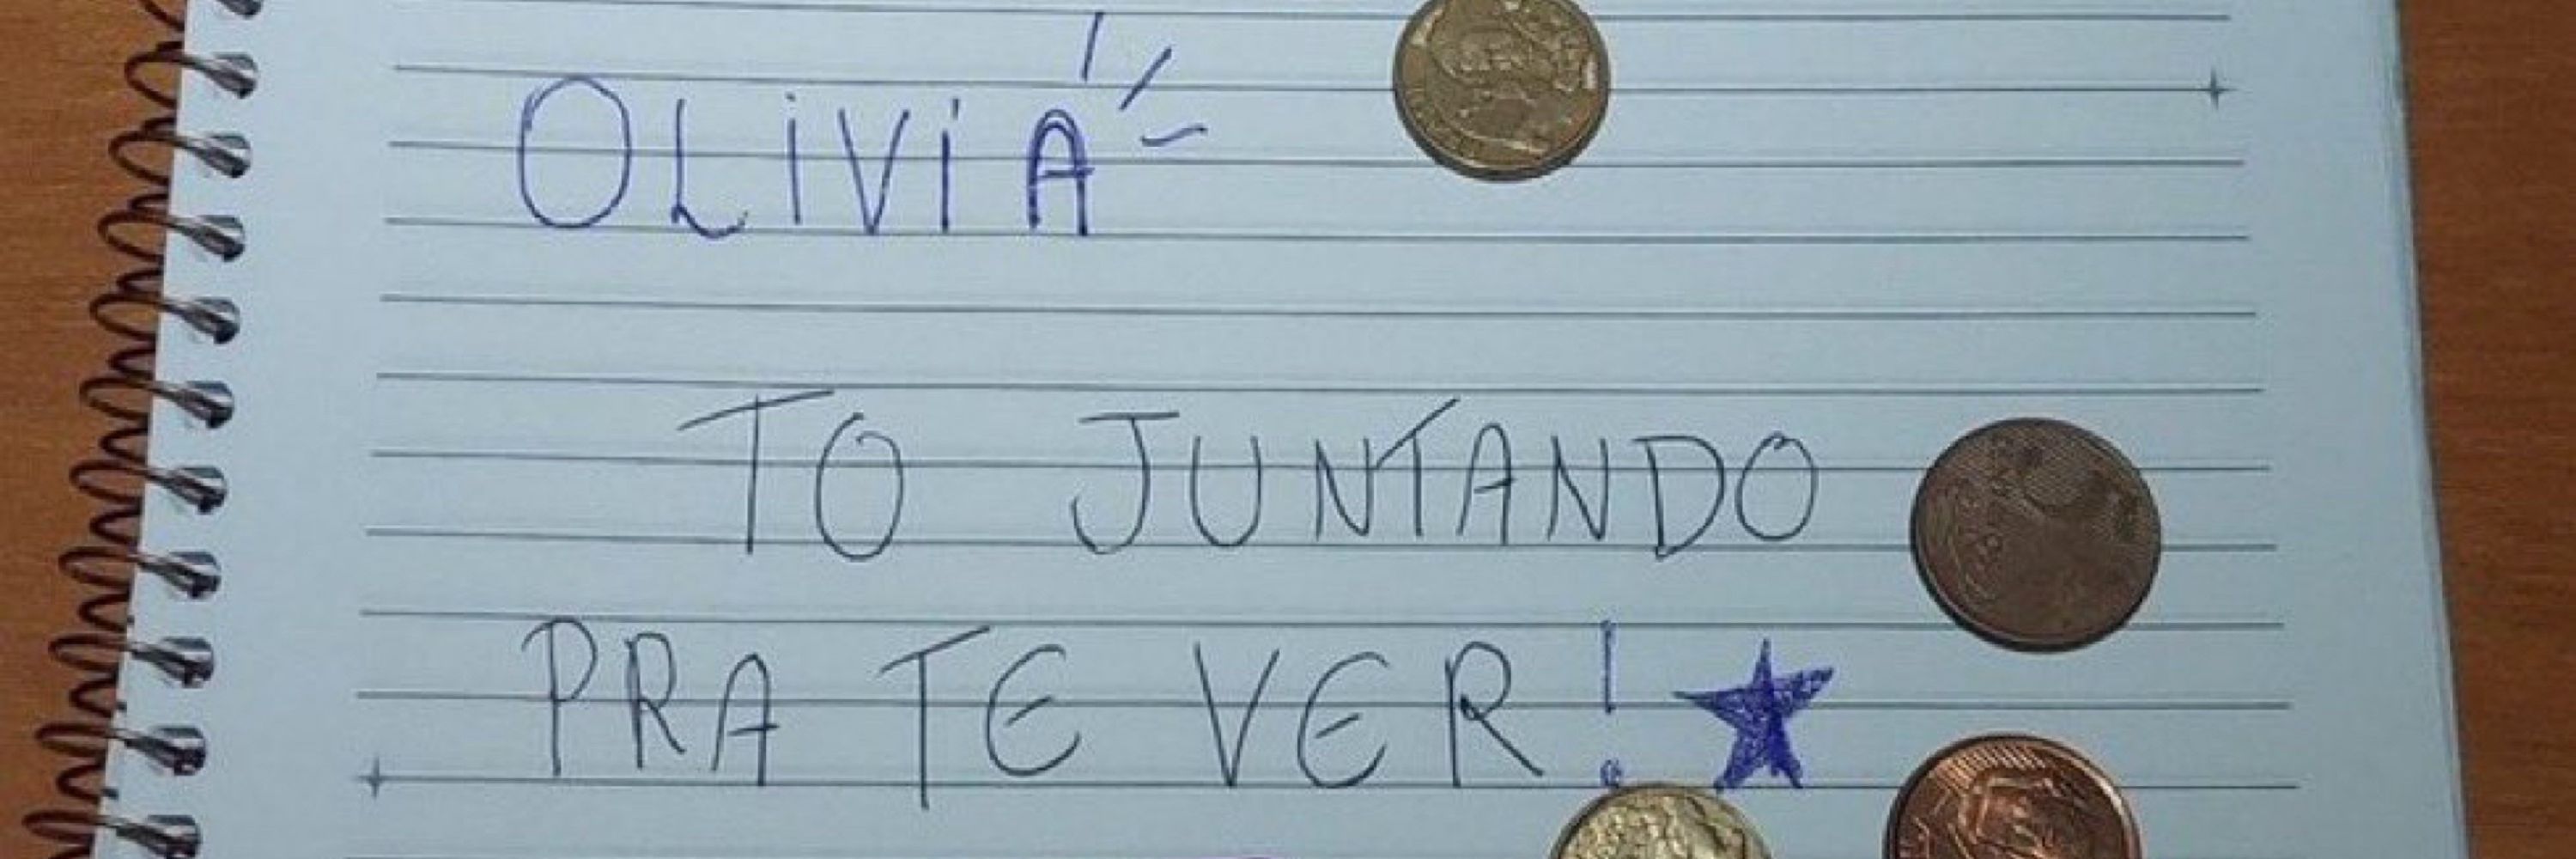 OLiViA
TO JUNTANDO
PRA TE VER!